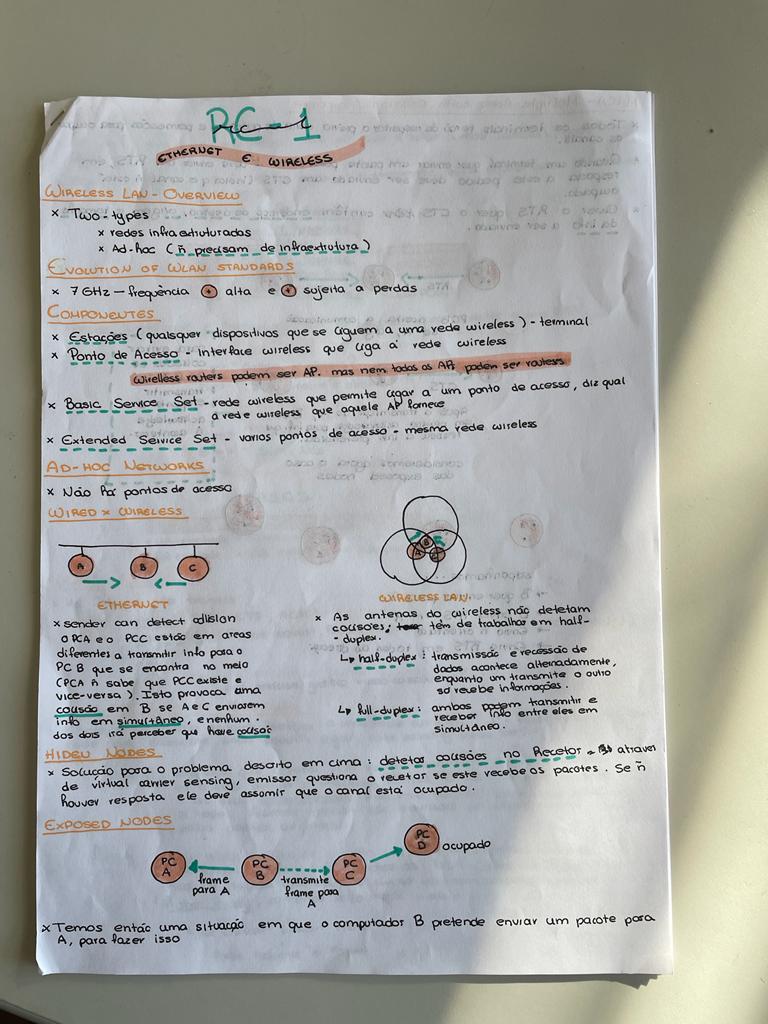 RC-1
ETHERNET E WIRELESS
WIRELESS LAN - OVERVIEW
x Two-types
x redes infraestruturadas
x Ad-hoc (ñ precisam de infraextrutura)
EVOLUTION OF WLAN STANDARDS
x 7 GHz — frequência + alta e + sujeita a perdas
COMPONENTES
x Estações (qualsquer dispositivos que se liguem a uma rede wireless) - terminal
x Ponto de Acesso - interface wireless que liga à rede wireless
wirelless routers podem ser AP. mas nem todos os AP. podem ser routers
x Basic Service Set - rede wireless que permite ligar a um ponto de acesso, diz qual
a rede wireless que aquele AP fornece
x Extended Service Set - varios pontos de acesso - mesma rede wireless
AD-HOC NETWORKS
x Não há pontos de acesso
WIRED x WIRELESS
A B C
A B C
ETHERNET
x sender can detect collision
o PCA e o PCC estão em areas
diferentes a transmitir info para o
PC B que se encontra no meio
(PCA ñ sabe que PCC existe e
vice-versa). Isto provoca uma
colisão em B se A e C enviarem
info em simultâneo, e nenhum
dos dois irá perceber que houve colisão
WIRELESS LAN
x As antenas do wireless não detetam
colisões; têm de trabalhar em half-
-duplex.
↳ half-duplex: transmissão e recessão de
dados acontece alternadamente,
enquanto um transmite o outro
só recebe informações.
↳ full-duplex: ambos podem transmitir e
receber info entre eles em
simultâneo.
HIDEN NODES
x Solução para o problema descrito em cima: detetar colisões no Recetor - através
de virtual carrier sensing, emissor questiona o recetor se este recebe os pacotes. Se ñ
houver resposta ele deve assumir que o canal está ocupado.
EXPOSED NODES
PC A PC B PC C PC D ocupado
frame para A
transmite frame para A
x Temos então uma situação em que o computador B pretende enviar um pacote para
A, para fazer isso